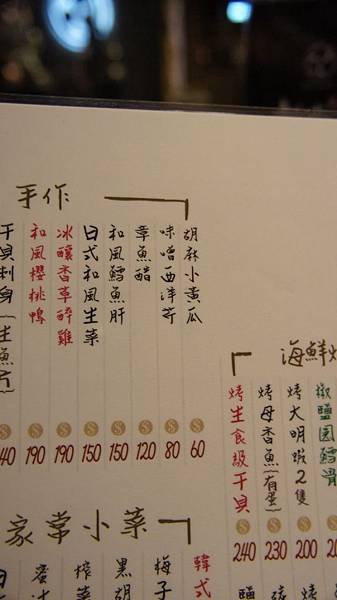 手作
胡麻小黃瓜 60
味噌西洋芹 80
章魚醋 120
和風鱈魚肝 150
日式和風生菜 150
冰釀香草醉雞 190
和風櫻桃鴨 190
干貝刺身(生魚片) 40
海鮮烤
椒鹽圓鱈骨 20
烤大明蝦2隻 200
烤母香魚(有蛋) 230
烤生食級干貝 240
家常小菜
韓式
梅子
黑胡
榨菜
蜜汁